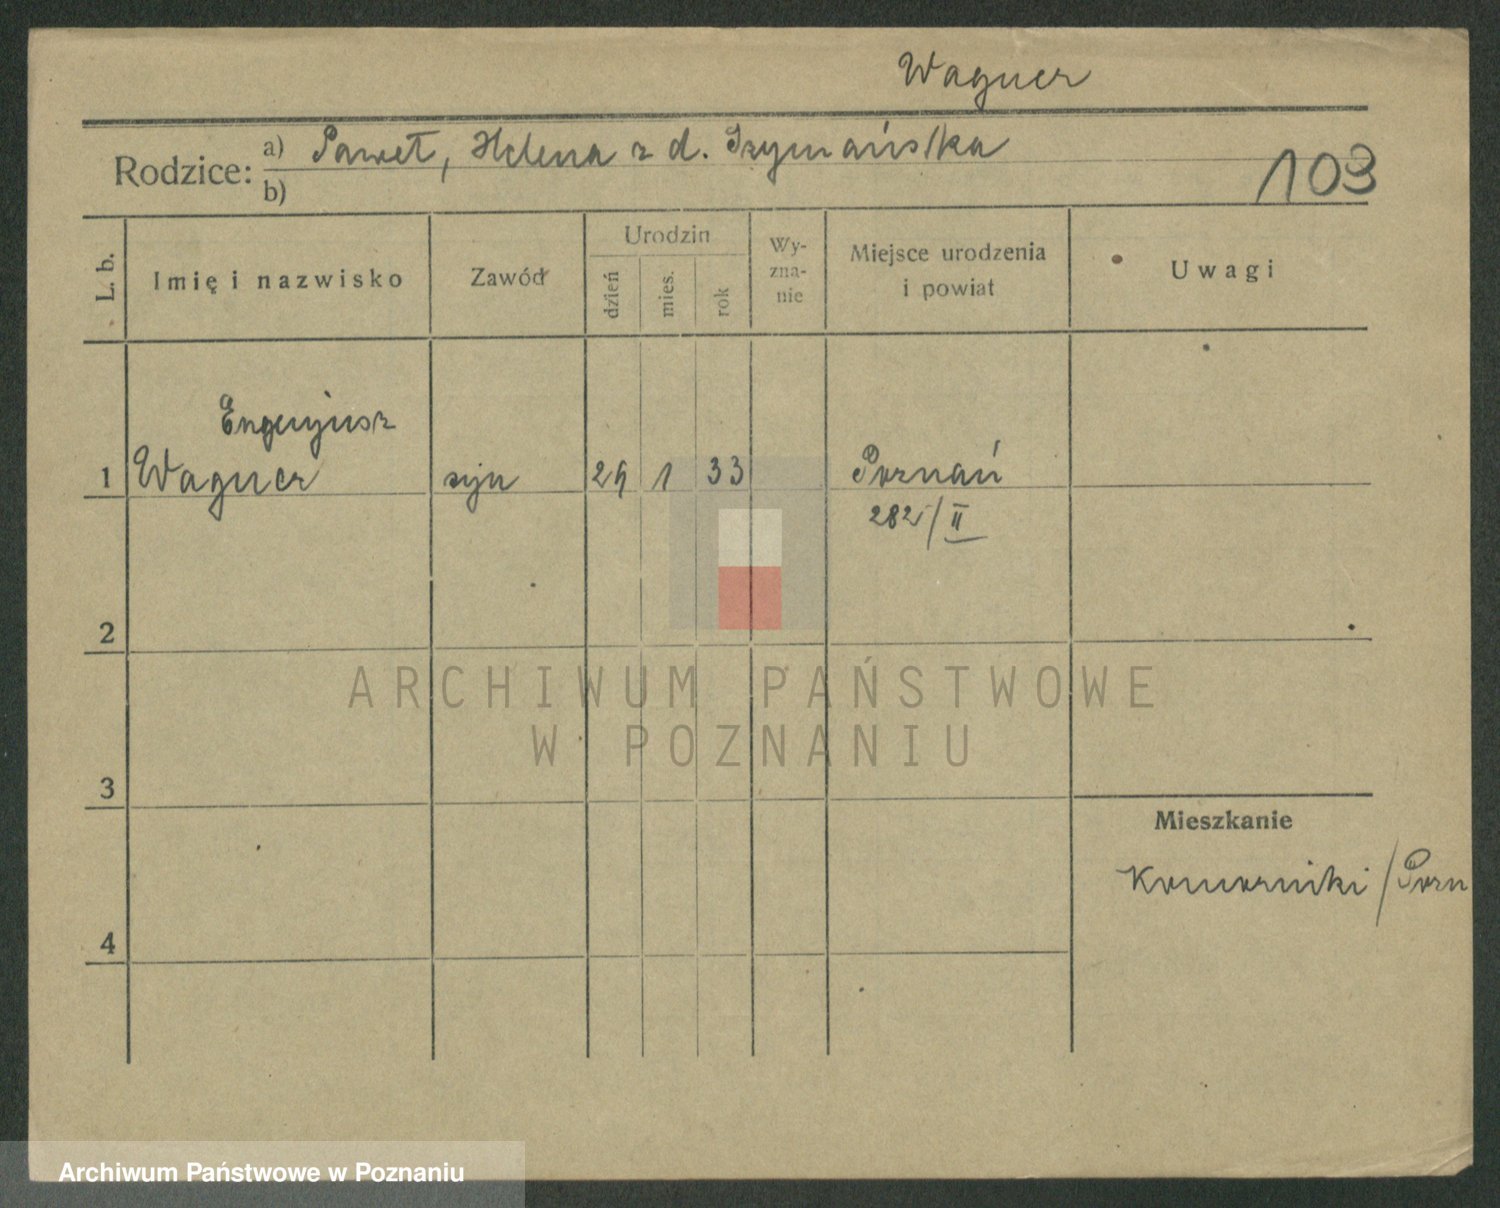 Wagner
Rodzice: a) Paweł, Helena z d. Szymańska
b)
103
L. b.
Imię i nazwisko
Zawód
Urodzin
dzień
mies.
rok
Wy-
zna-
nie
Miejsce urodzenia
i powiat
Uwagi
Eugenjusz
1 Wagner syn 29 1 33 Poznań
282/II
2
3
4
Mieszkanie
Komorniki/Pozn
ARCHIWUM PAŃSTWOWE
W POZNANIU
Archiwum Państwowe w Poznaniu